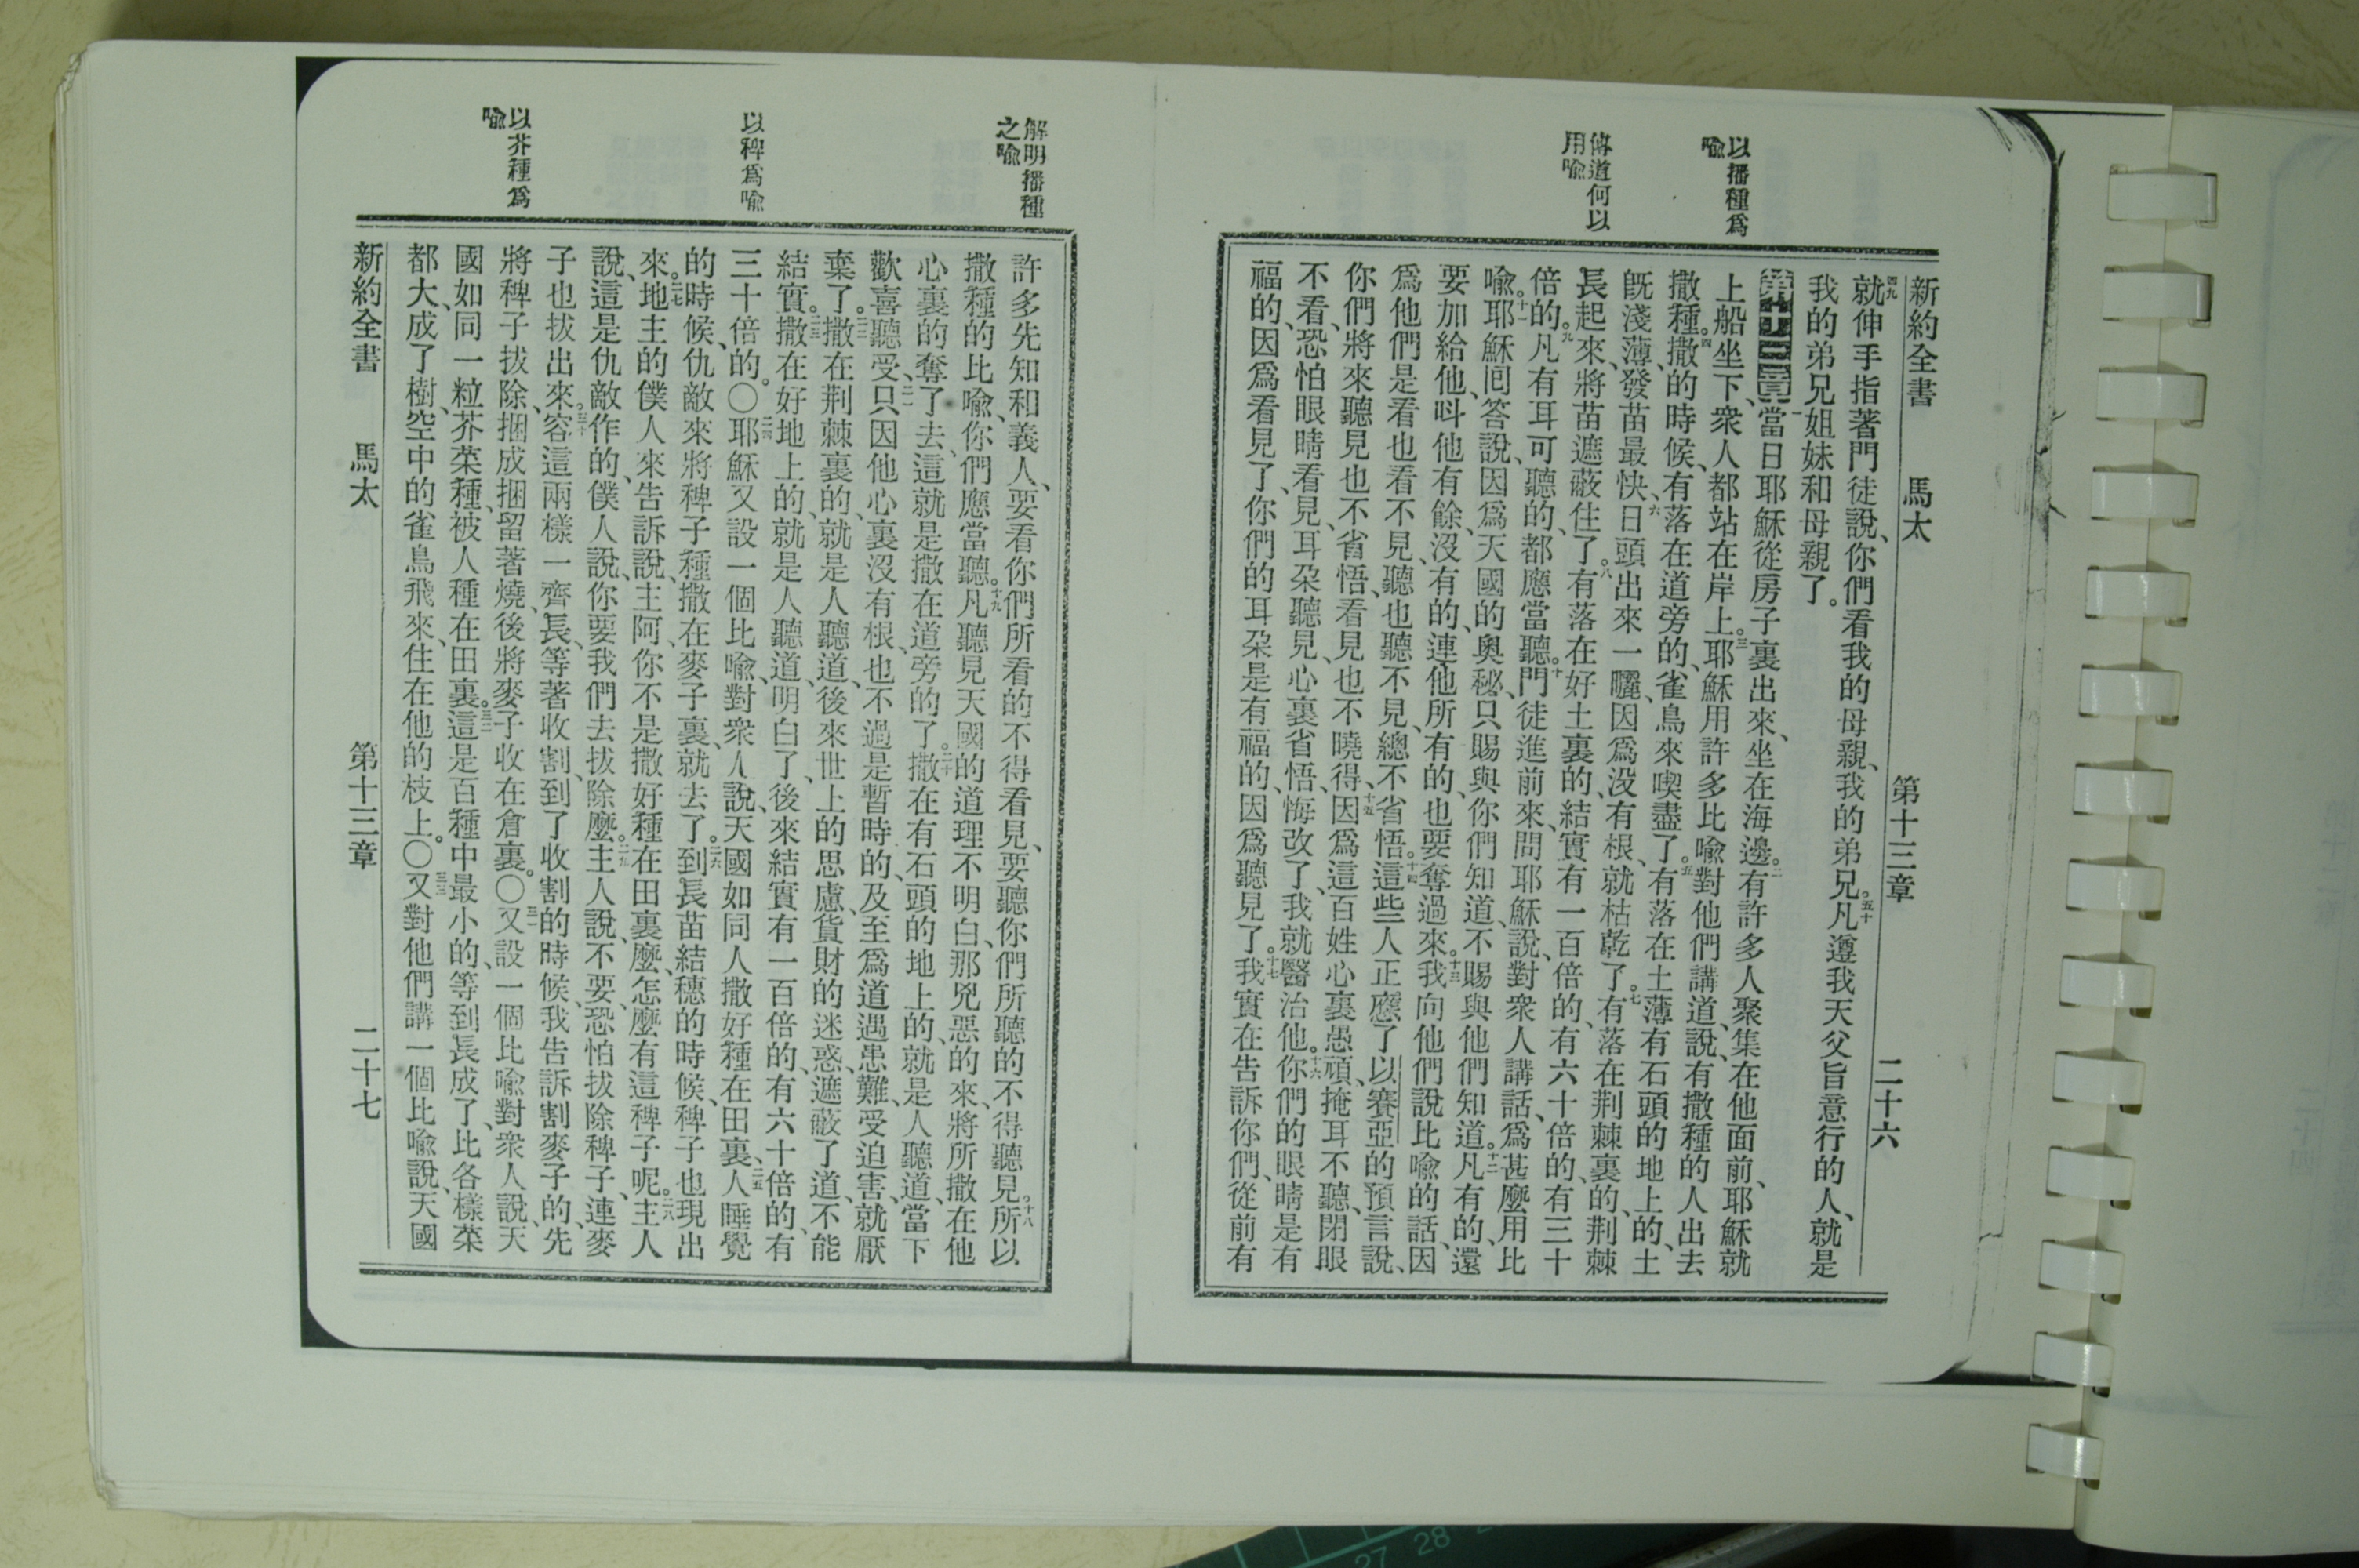 新約全書 馬太 第十三章 二十六
以播種爲
喩
傳道何以
用喩
四九就伸手指著門徒說、你們看我的母親、我的弟兄。五十凡遵我天父旨意行的人、就是
我的弟兄姐妹和母親了。
第十三章一當日耶穌從房子裏出來、坐在海邊。二有許多人聚集在他面前、耶穌就
上船坐下、衆人都站在岸上。三耶穌用許多比喩對他們講道、說、有撒種的人出去
撒種。四撒的時候、有落在道旁的、雀鳥來喫盡了。五有落在土薄有石頭的地上的、土
旣淺薄、發苗最快、六日頭出來一曬、因爲沒有根、就枯乾了。七有落在荆棘裏的、荆棘
長起來、將苗遮蔽住了。八有落在好土裏的、結實有一百倍的、有六十倍的、有三十
倍的。九凡有耳可聽的、都應當聽。十門徒進前來、問耶穌說、對衆人講話、爲甚麼用比
喩。十一耶穌囘答說、因爲天國的奧秘、只賜與你們知道、不賜與他們知道。十二凡有的、還
要加給他、呌他有餘、沒有的、連他所有的、也要奪過來。十三我向他們說比喩的話、因
爲他們是看也看不見、聽也聽不見、總不省悟。十四這些人正應了以賽亞的預言說、
你們將來聽見也不省悟、看見也不曉得、十五因爲這百姓心裏愚頑、掩耳不聽、閉眼
不看、恐怕眼睛看見、耳朶聽見、心裏省悟、悔改了、我就醫治他。十六你們的眼睛是有
福的、因爲看見了、你們的耳朶是有福的、因爲聽見了。十七我實在告訴你們、從前有
解明播種
之喩
以稗爲喩
以芥種爲
喩
許多先知和義人、要看你們所看的不得看見、要聽你們所聽的不得聽見。十八所以
撒種的比喩、你們應當聽。十九凡聽見天國的道理不明白、那兇惡的來、將所撒在他
心裏的奪了去、這就是撒在道旁的了。二十撒在有石頭的地上的、就是人聽道、當下
歡喜聽受、二一只因他心裏沒有根、也不過是暫時的、及至爲道遇患難、受迫害、就厭
棄了。二二撒在荆棘裏的、就是人聽道、後來世上的思慮、貨財的迷惑、遮蔽了道、不能
結實。二三撒在好地上的、就是人聽道、明白了、後來結實有一百倍的、有六十倍的、有
三十倍的。〇二四耶穌又設一個比喩、對衆人說、天國如同人撒好種在田裏、二五人睡覺
的時候、仇敵來將稗子種撒在麥子裏、就去了。二六到長苗結穗的時候、稗子也現出
來。二七地主的僕人來告訴說、主阿、你不是撒好種在田裏麼、怎麼有這稗子呢。二八主人
說、這是仇敵作的、僕人說、你要我們去拔除麼。二九主人說、不要、恐怕拔除稗子、連麥
子也拔出來。三十容這兩樣一齊長、等著收割、到了收割的時候、我告訴割麥子的、先
將稗子拔除、捆成捆留著燒、後將麥子收在倉裏。〇三一又設一個比喩對衆人說、天
國如同一粒芥菜種、被人種在田裏。三二這是百種中最小的、等到長成了、比各樣菜
都大、成了樹、空中的雀鳥飛來、住在他的枝上。〇三三又對他們講一個比喩說、天國
新約全書 馬太 第十三章 二十七
27 28